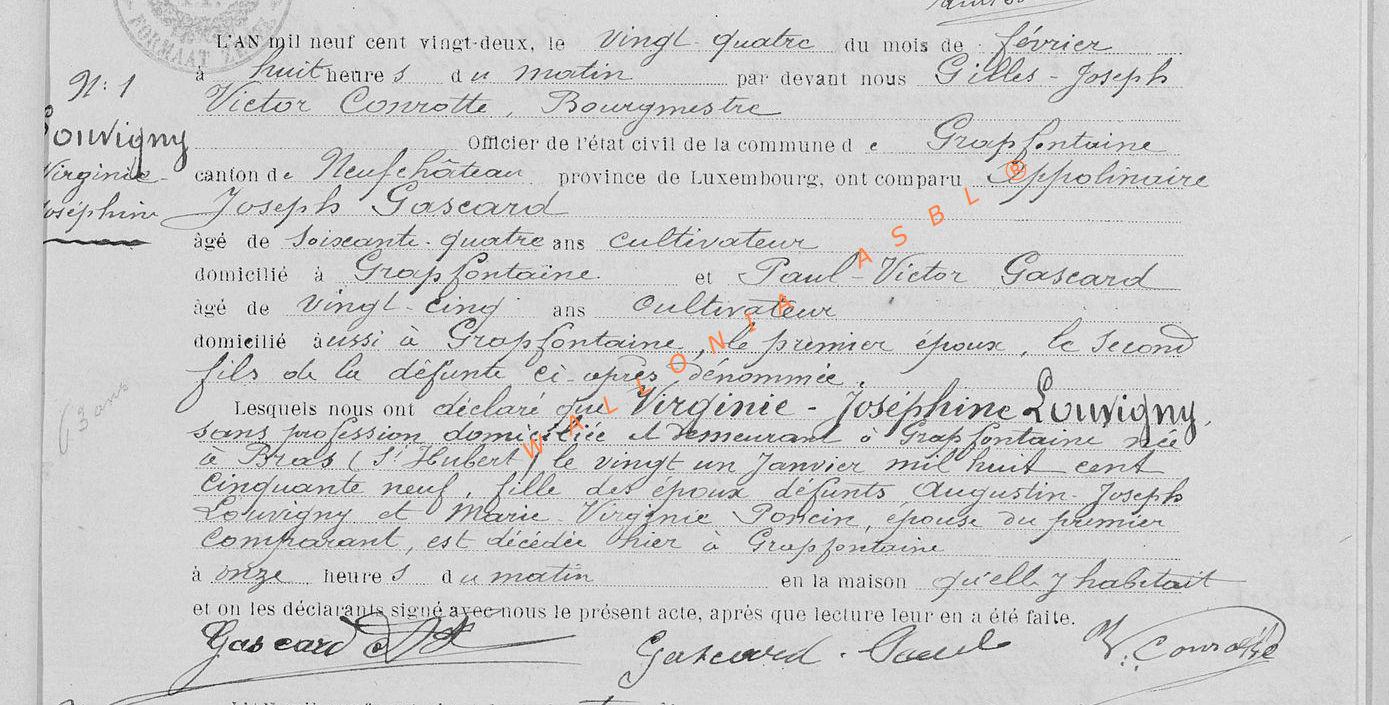 FORMAAT ZE
L'AN mil neuf cent vingt-deux, le vingt-quatre du mois de février
à huit heure s du matin par devant nous Gilles-Joseph
N: 1
Victor Conrotte, Bourgmestre
Louvigny
Officier de l'état civil de la commune d e Grapfontaine
Virginie-
canton de Neufchâteau province de Luxembourg, ont comparu Appolinaire
Joséphine
Joseph Gascard
âgé de soixante-quatre ans cultivateur
domicilié à Grapfontaine et Paul-Victor Gascard
âgé de vingt-cinq ans cultivateur
domicilié aussi à Grapfontaine, le premier époux, le second
fils de la défunte ci-après dénommée.
63 ans
Lesquels nous ont déclaré que Virginie-Joséphine Louvigny,
sans profession domiciliée et demeurant à Grapfontaine née
à Bras (St Hubert) le vingt un Janvier mil huit cent
cinquante neuf, fille des époux défunts Augustin-Joseph
Louvigny et Marie-Virginie Poncin, épouse du premier
comparant, est décédée hier à Grapfontaine
à onze heure s du matin en la maison qu'elle y habitait
et on les déclarants signé avec nous le présent acte, après que lecture leur en a été faite.
Gascard
Gascard. Paul
V. Conrotte
WALLONIA ASBL ®